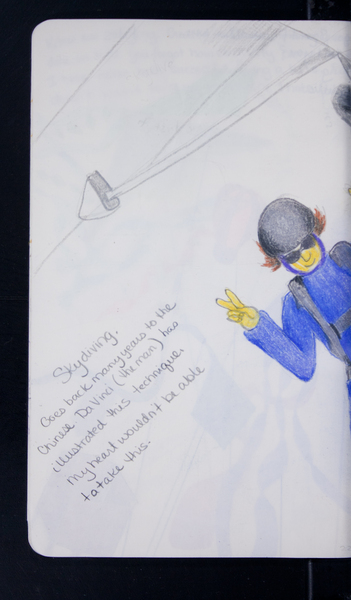 Skydiving.
Goes back many years to the
Chinese Da Vinci (the man) has
illustrated this technique.
My heart wouldn't be able
to take this.